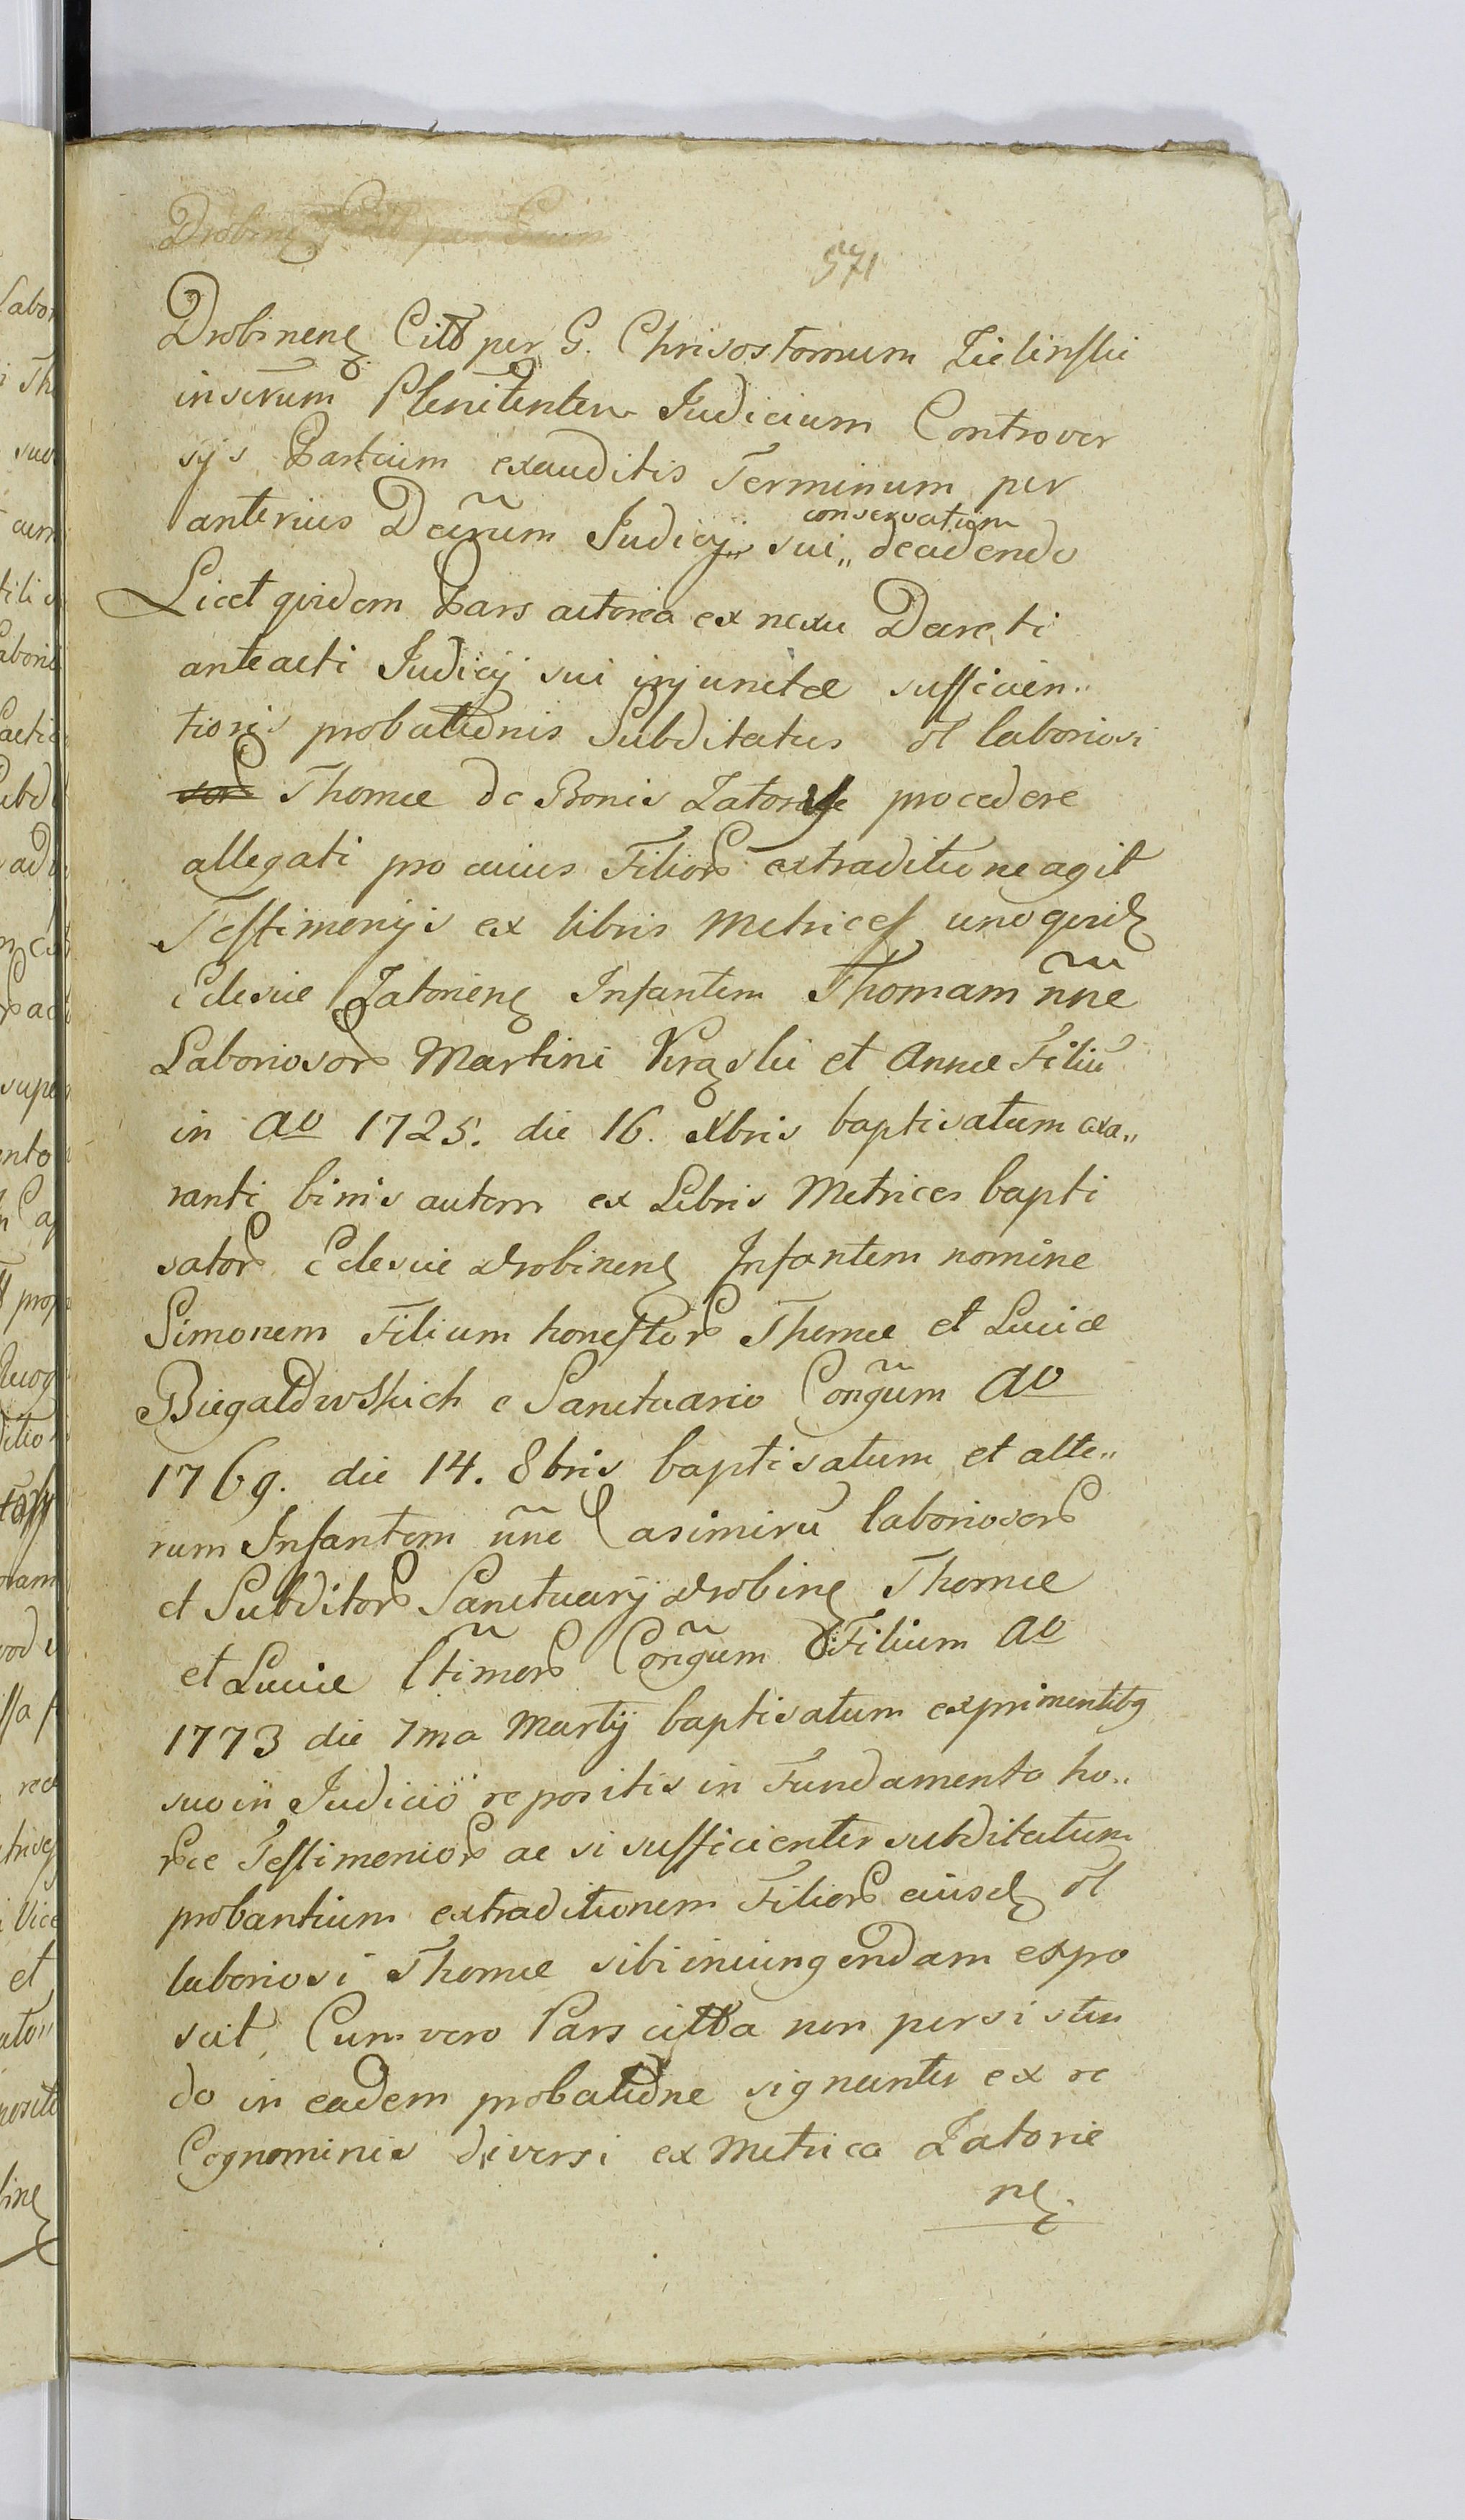 Drobinen
571
Drobinen Citt per G. Chrisostomum Zielinski
inserum Plenitenten Judicium Controver
sijs Partium exauditis Terminum per
anterius Decrum Judicij sui „ conservatum decidendo
Licet quidem Pars actorea ex nexu Decreti
anteacti Judicij sui injunctæ sufficien„
tioris probationis Subditatus ol laboriosi
Thomæ de Bonis Zatory procedere
allegati pro cuius Filior extraditione agit
Testimonijs ex libris Metrices uno quid
Eclesiæ Zatorien Infantem Thomam nne
Laboriosor Martini et Annæ Filiu
in Ao 1725. die 16. Xbris baptisatum exa„
ranti binis autem ex Libris Metrices bapti
sator Eclesiæ Drobinen Infantem nomine
Simonem Filium honestor Thomæ et Luciæ
Biegaldwskich e Sanctuario Congum Ao
1769. die 14. 8bris baptisatum et alte„
rum Infantem nne Casimiru laboriosor
et Subditor Sanctuarij Drobine Thomæ
et Luciæ ltimor Congum Filium Ao
1773 die 7ma Martij baptisatum exprimentibq
suo in Judicio repositis in Fundamento ho„
rce Testimonior ac si sufficienter subditatum
probantium extraditionem Filior eiusd ol
laboriosi Thomæ sibi iniungendam expo
scit, Cum vero Pars citta non persisten
do in eadem probatione signanter ex re
Cognominis diversi ex Metrica Zatorie
ne.